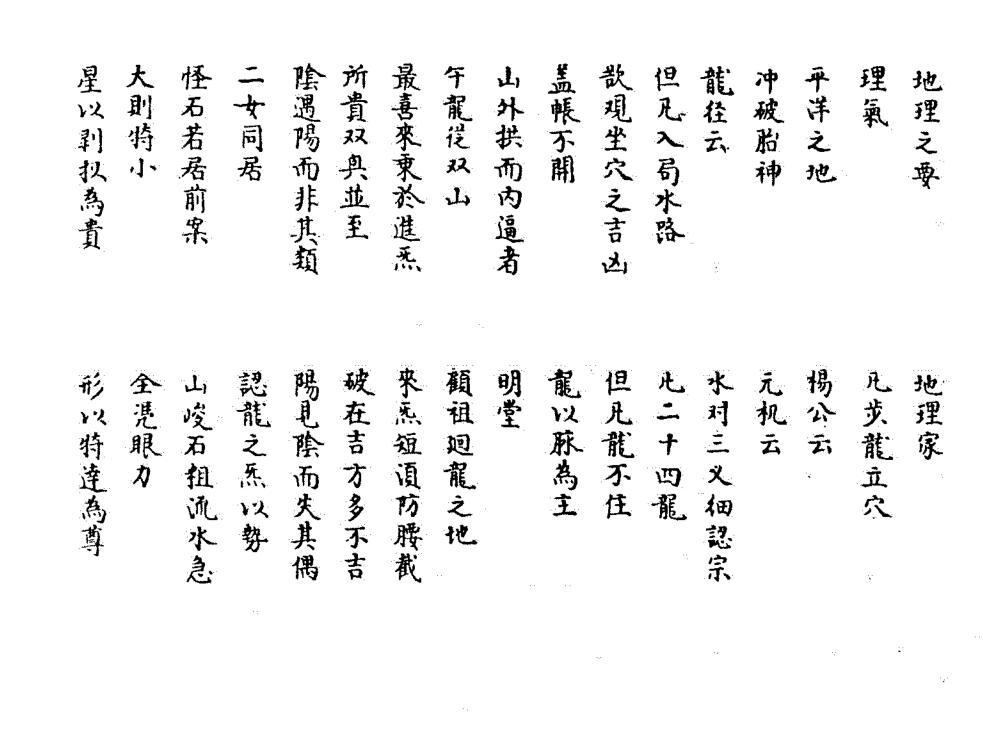 地理之要
地理家
理氣
凡步龍立穴
平洋之地
楊公云
冲破胎神
元机云
龍径云
水对三义細認宗
但凡入局水路
凡二十四龍
欲观坐穴之吉凶
但凡龍不住
盖帳不開
龍以脉為主
山外拱而内逼者
明堂
午龍從双山
顧祖廻龍之地
最喜來秉於進炁
來炁短須防腰截
所貴双與並至
破在吉方多不吉
陰遇陽而非其類
陽見陰而失其偶
二女同居
認龍之炁以勢
怪石若居前案
山峻石粗流水急
大則特小
全凭眼力
星以剥拟為貴
形以特達為尊